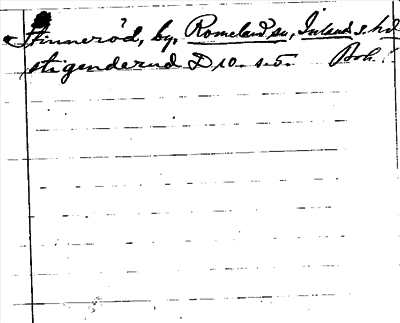 Stinneröd, by, Romeland sn, Inland s. hd
stigenderud D 10. s. 5. Boh.